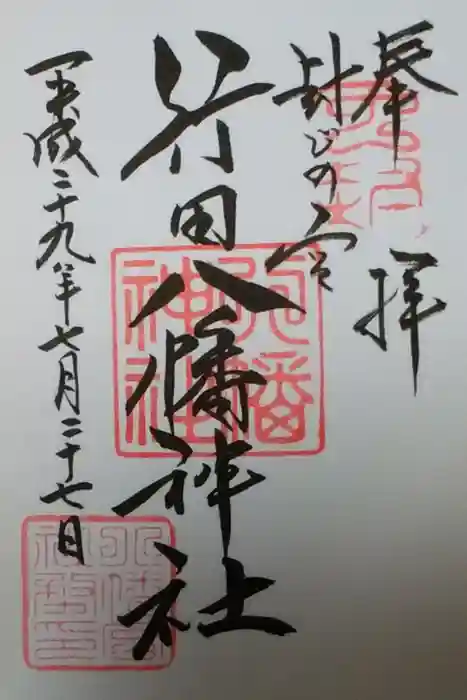 奉拝
封じの宮
行田八幡神社
平成二十九年七月二十七日
八幡神社